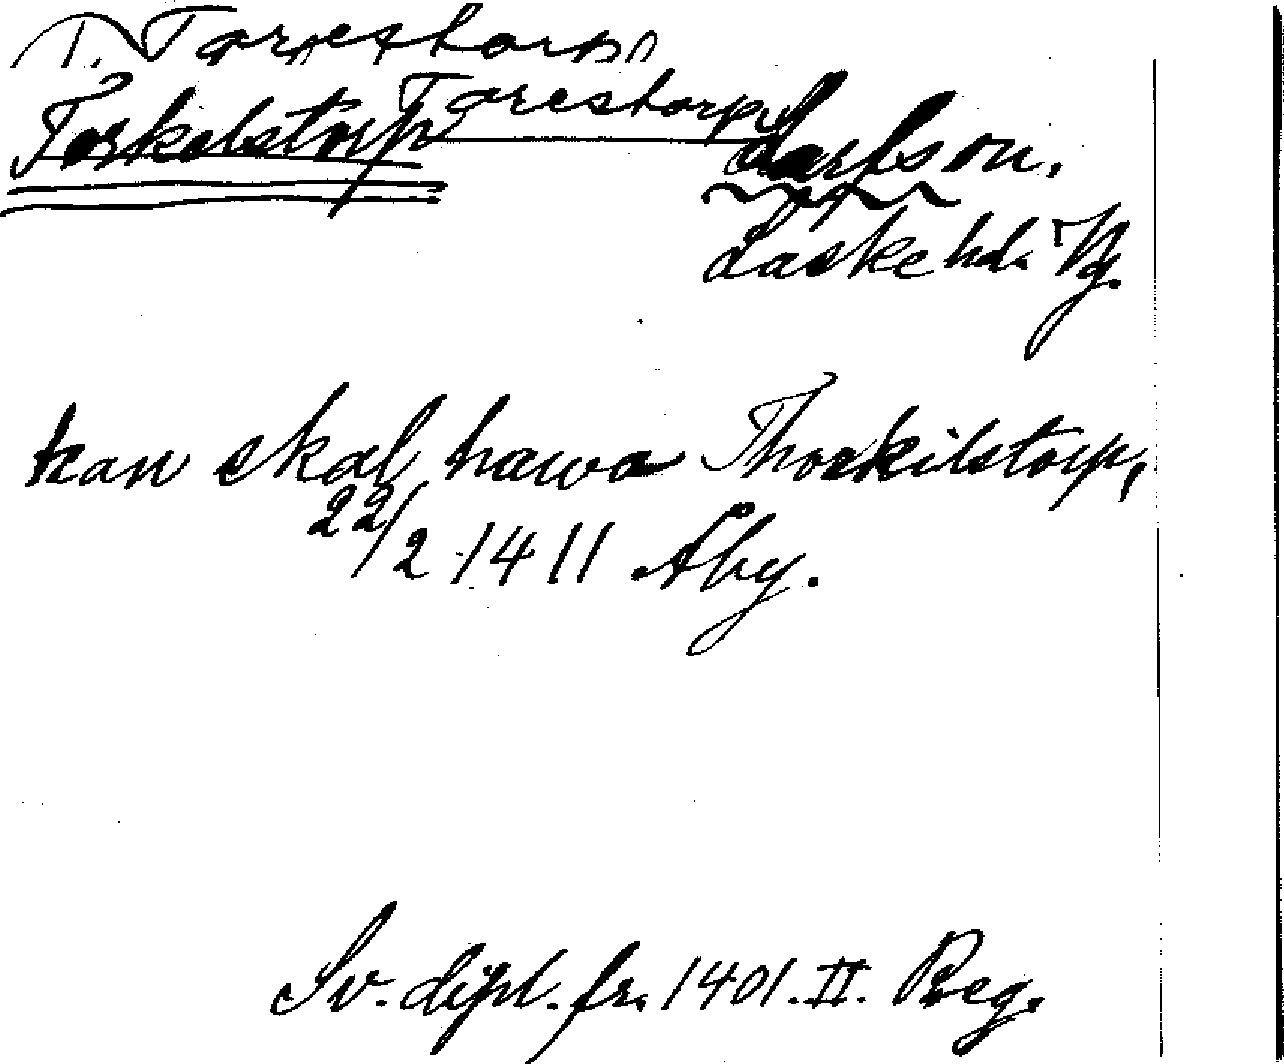 T. Torestorp
Torkelstorp Torestorp
Larfs sn.
Laske hd. Vg.
han skal hawa Thorkilstorp,
22/2 1411 Åby.
Sv. dipl. fr. 1401. II. Reg.